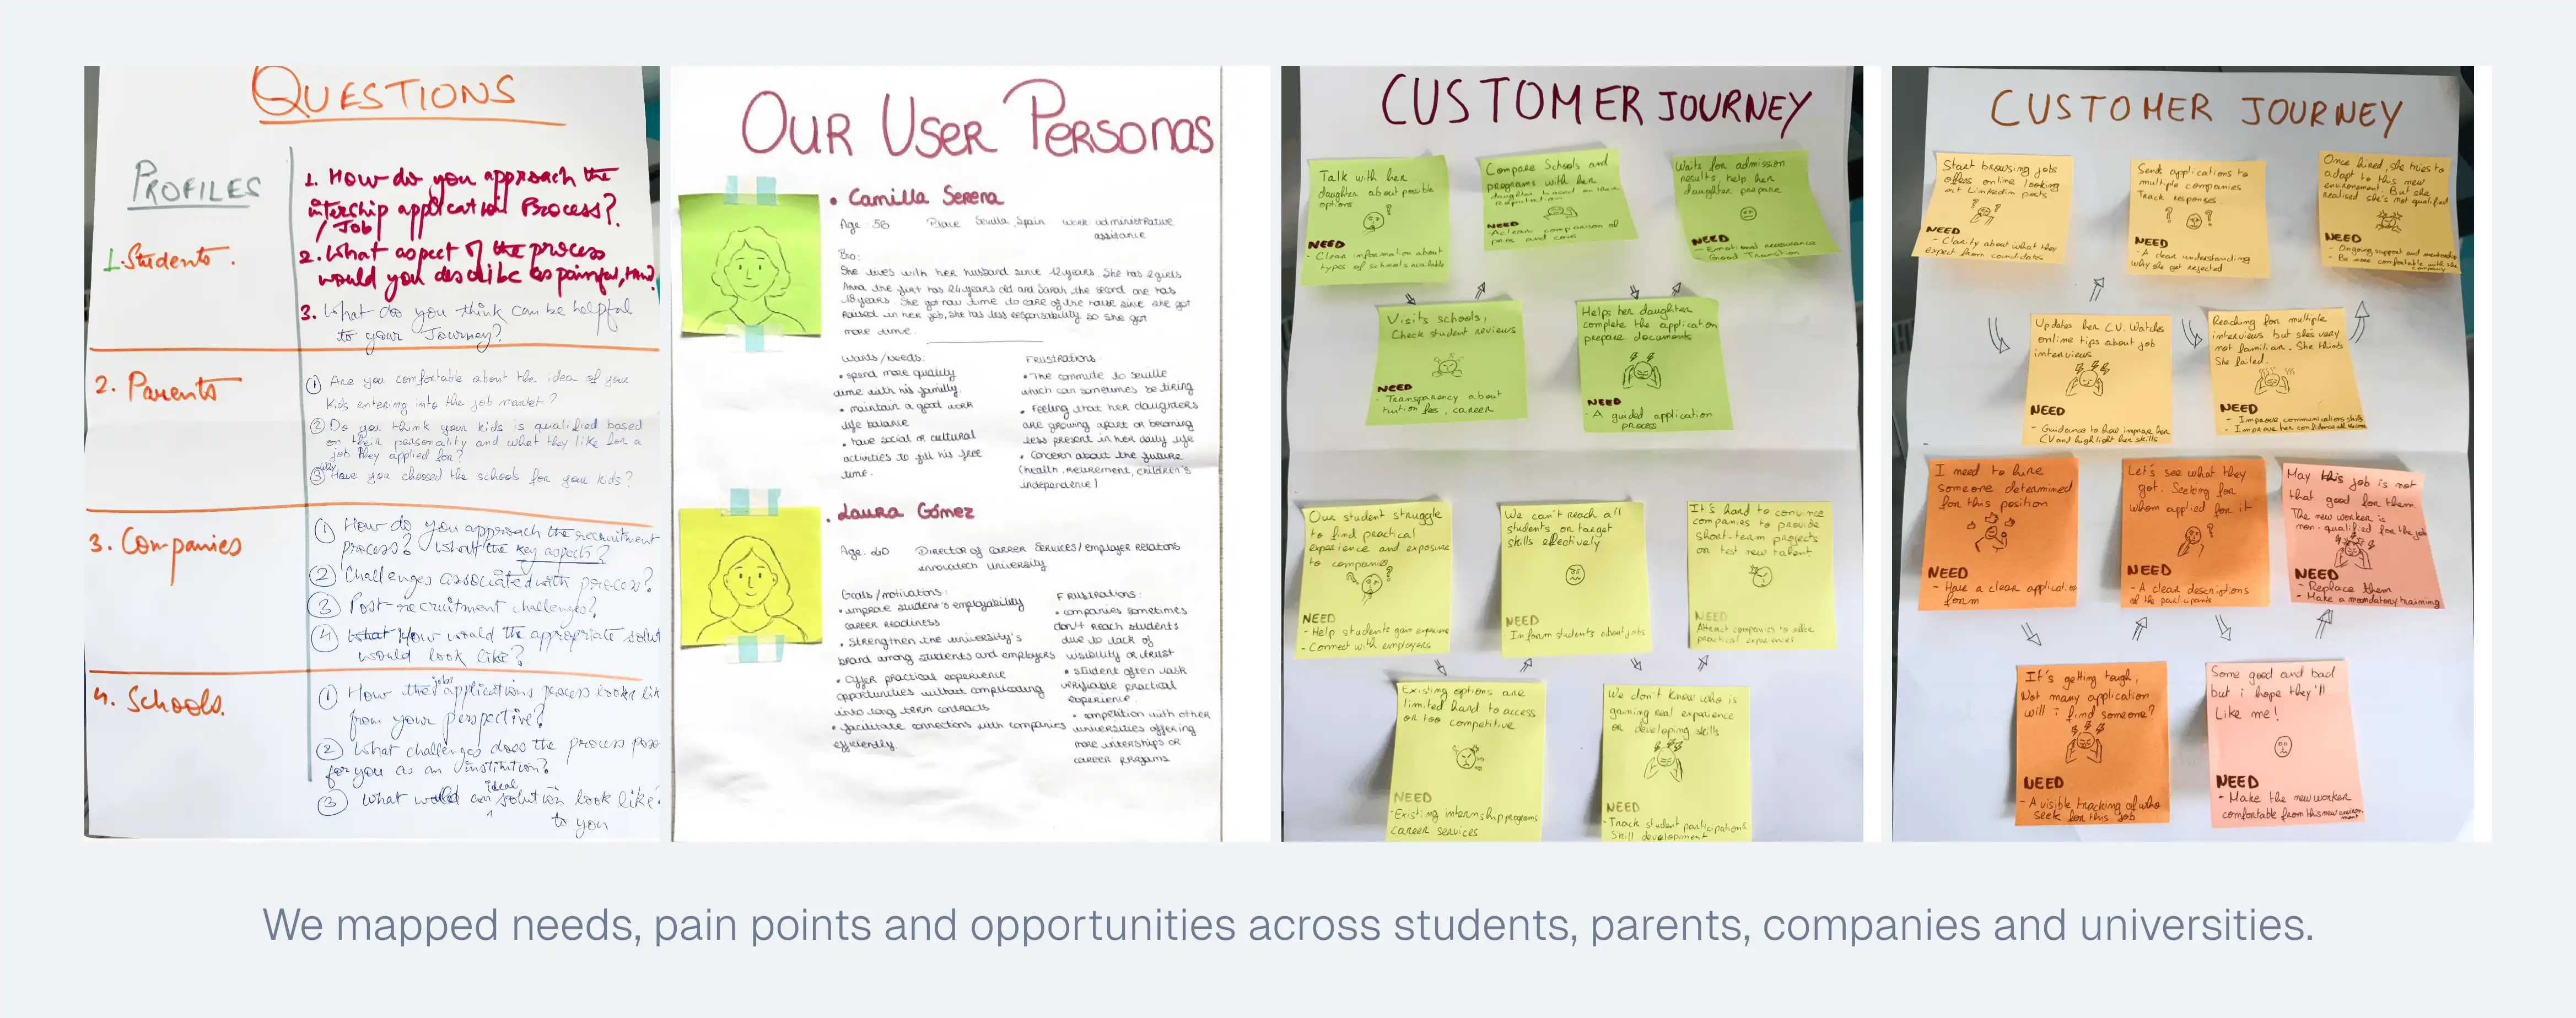 QUESTIONS
PROFILES
1. Students.
1. How do you approach the
intership application Process?
/ Job
2. What aspect of the process
would you describe as painful,
3. What do you think can be helpful
to your Journey?
2. Parents
① Are you comfortable about the idea of your
kids entering into the job market?
② Do you think your kids is qualified based
on their personality and what they like for a
job they applied for?
③ Have you choosed the schools for your kids?
3. Companies
① How do you approach the recruitment
process? What the key aspects?
② Challenges associated with process?
③ Post-recruitment challenges?
④ How would the appropriate solut
would look like?
4. Schools.
① How the jobs applications process looks lik
from your perspective?
② What challenges does the process pose
for you as an institution?
③ What would an ideal solution look like
to you
OUR USER PERSONAS
• Camilla Serena
Age 56 Place Sevilla, Spain Work administrative
assistance
Bio:
She lives with her husband since 12 years. She has 2 girls
Anna the first has 24 years old and Sarah the second one has
18 years. She got now time to care of the house since she got
in her job, she has less responsability so she got
more time.
Wants/needs:
• spend more quality
time with his familly.
• maintain a good work
life balance
• have social or cultural
activities to fill his free
time.
FRUSTRATIONS:
• The commute to seville
which can sometimes be tiring
• Feeling that her daughters
are growing apart or becoming
less present in her daily life
• Concern about the future
(health, retirement, children's
independence)
. Laura Gómez
Age: 40 Director of career services/employer relations
innovatech University
Goals/motivations:
• improve student's employability
career readiness
• Strengthen the university's
brand among students and employers
• Offer practical experience
opportunities without complicating
into long term contracts
• facilitate connections with companies
efficiently.
FRUSTRATIONS:
• companies sometimes
don't reach students
due to lack of
visibility or trust
• student often lack
verifiable practical
experience.
• competition with other
universities offering
more interships or
career programs
CUSTOMER JOURNEY
Talk with her
daughter about possible
options
NEED
- Clear information about
types of schools available
Compare Schools and
programs with her
daughter based on their
Reputation
NEED
A clear comparison of
pros and cons
Waits for admission
results, help her
daughter prepare
NEED
- Emotional reassurance
- Good Transition
Visits schools,
Check student reviews
NEED
- Transparency about
tuition fees, career
Helps her daughter
complete the application
prepare documents
NEED
- A guided application
process
Our student struggle
to find practical
experience and exposure
to companies
NEED
- Help students gain experience
- Connect with employers
We can't reach all
students, or target
skills effectively
NEED
Inform students about jobs
It's hard to convince
companies to provide
short-term projects
or test new talent.
NEED
Attract companies to offer
practical experiences
Existing options are
limited hard to access
or too competitive
NEED
- Existing internship programs
career services
We don't know who is
gaining real experience
or developing skills
NEED
- Track student participations
Skill development
CUSTOMER JOURNEY
Start browsing jobs
offers online looking
at Linkedin posts
NEED
- Clarity about what they
expect from candidates
Send applications to
multiple companies
Track responses.
NEED
- A clear understanding
why she got rejected
Once hired, she tries to
adapt to this new
environment. But she
realised she's not qualified
NEED
- Ongoing support and mentorship
- Be more comfortable with the
company
Updates her C.V. Watches
online tips about job
interviews
NEED
- Guidance to how improve her
CV and highlight her skills
Reaching for multiple
interviews but she's very
not familiar. She thinks
She failed.
NEED
- Improve communications skills
- Improve her confidence
I need to hire
someone determined
for this position
NEED
- Have a clear application
form
Let's see what they
got. Seeking for
whom applied for it
NEED
- A clear descriptions
of the participants
May this job is not
that good for them.
The new worker is
non-qualified for the job
NEED
- Replace them
- Make a mandatory training
It's getting tough,
Not many application
will i find someone?
NEED
- A visible tracking of who
seek for this job
Some good and bad
but i hope they'll
Like me!
NEED
- Make the new worker
comfortable from this new
We mapped needs, pain points and opportunities across students, parents, companies and universities.